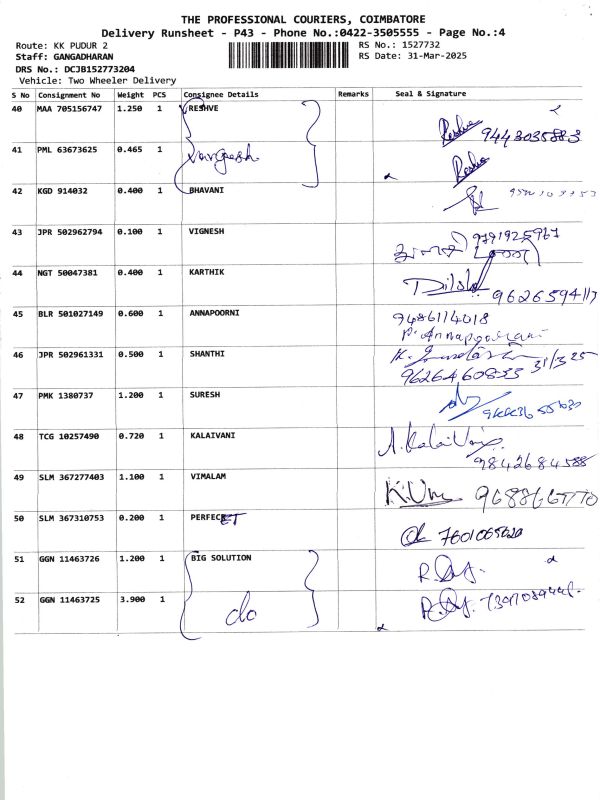 THE PROFESSIONAL COURIERS, COIMBATORE
Delivery Runsheet - P43 - Phone No.:0422-3505555 - Page No.:4
Route: KK PUDUR 2
RS No.: 1527732
Staff: GANGADHARAN
RS Date: 31-Mar-2025
DRS No.: DCJB152773204
Vehicle: Two Wheeler Delivery
S No Consignment No Weight PCS Consignee Details Remarks Seal & Signature
40 MAA 705156747 1.250 1 RESHVE
9443035883
41 PML 63673625 0.465 1
42 KGD 914032 0.400 1 BHAVANI
43 JPR 502962794 0.100 1 VIGNESH 9791925967
44 NGT 50047381 0.400 1 KARTHIK
9626594117
45 BLR 501027149 0.600 1 ANNAPOORNI 9486114018
P. Annapoorani
46 JPR 502961331 0.500 1 SHANTHI
9626460833 31/3/25
47 PMK 1380737 1.200 1 SURESH
48 TCG 10257490 0.720 1 KALAIVANI A. Kalaivani
9842684588
49 SLM 367277403 1.100 1 VIMALAM
50 SLM 367310753 0.200 1
51 GGN 11463726 1.200 1 BIG SOLUTION
52 GGN 11463725 3.900 1 do